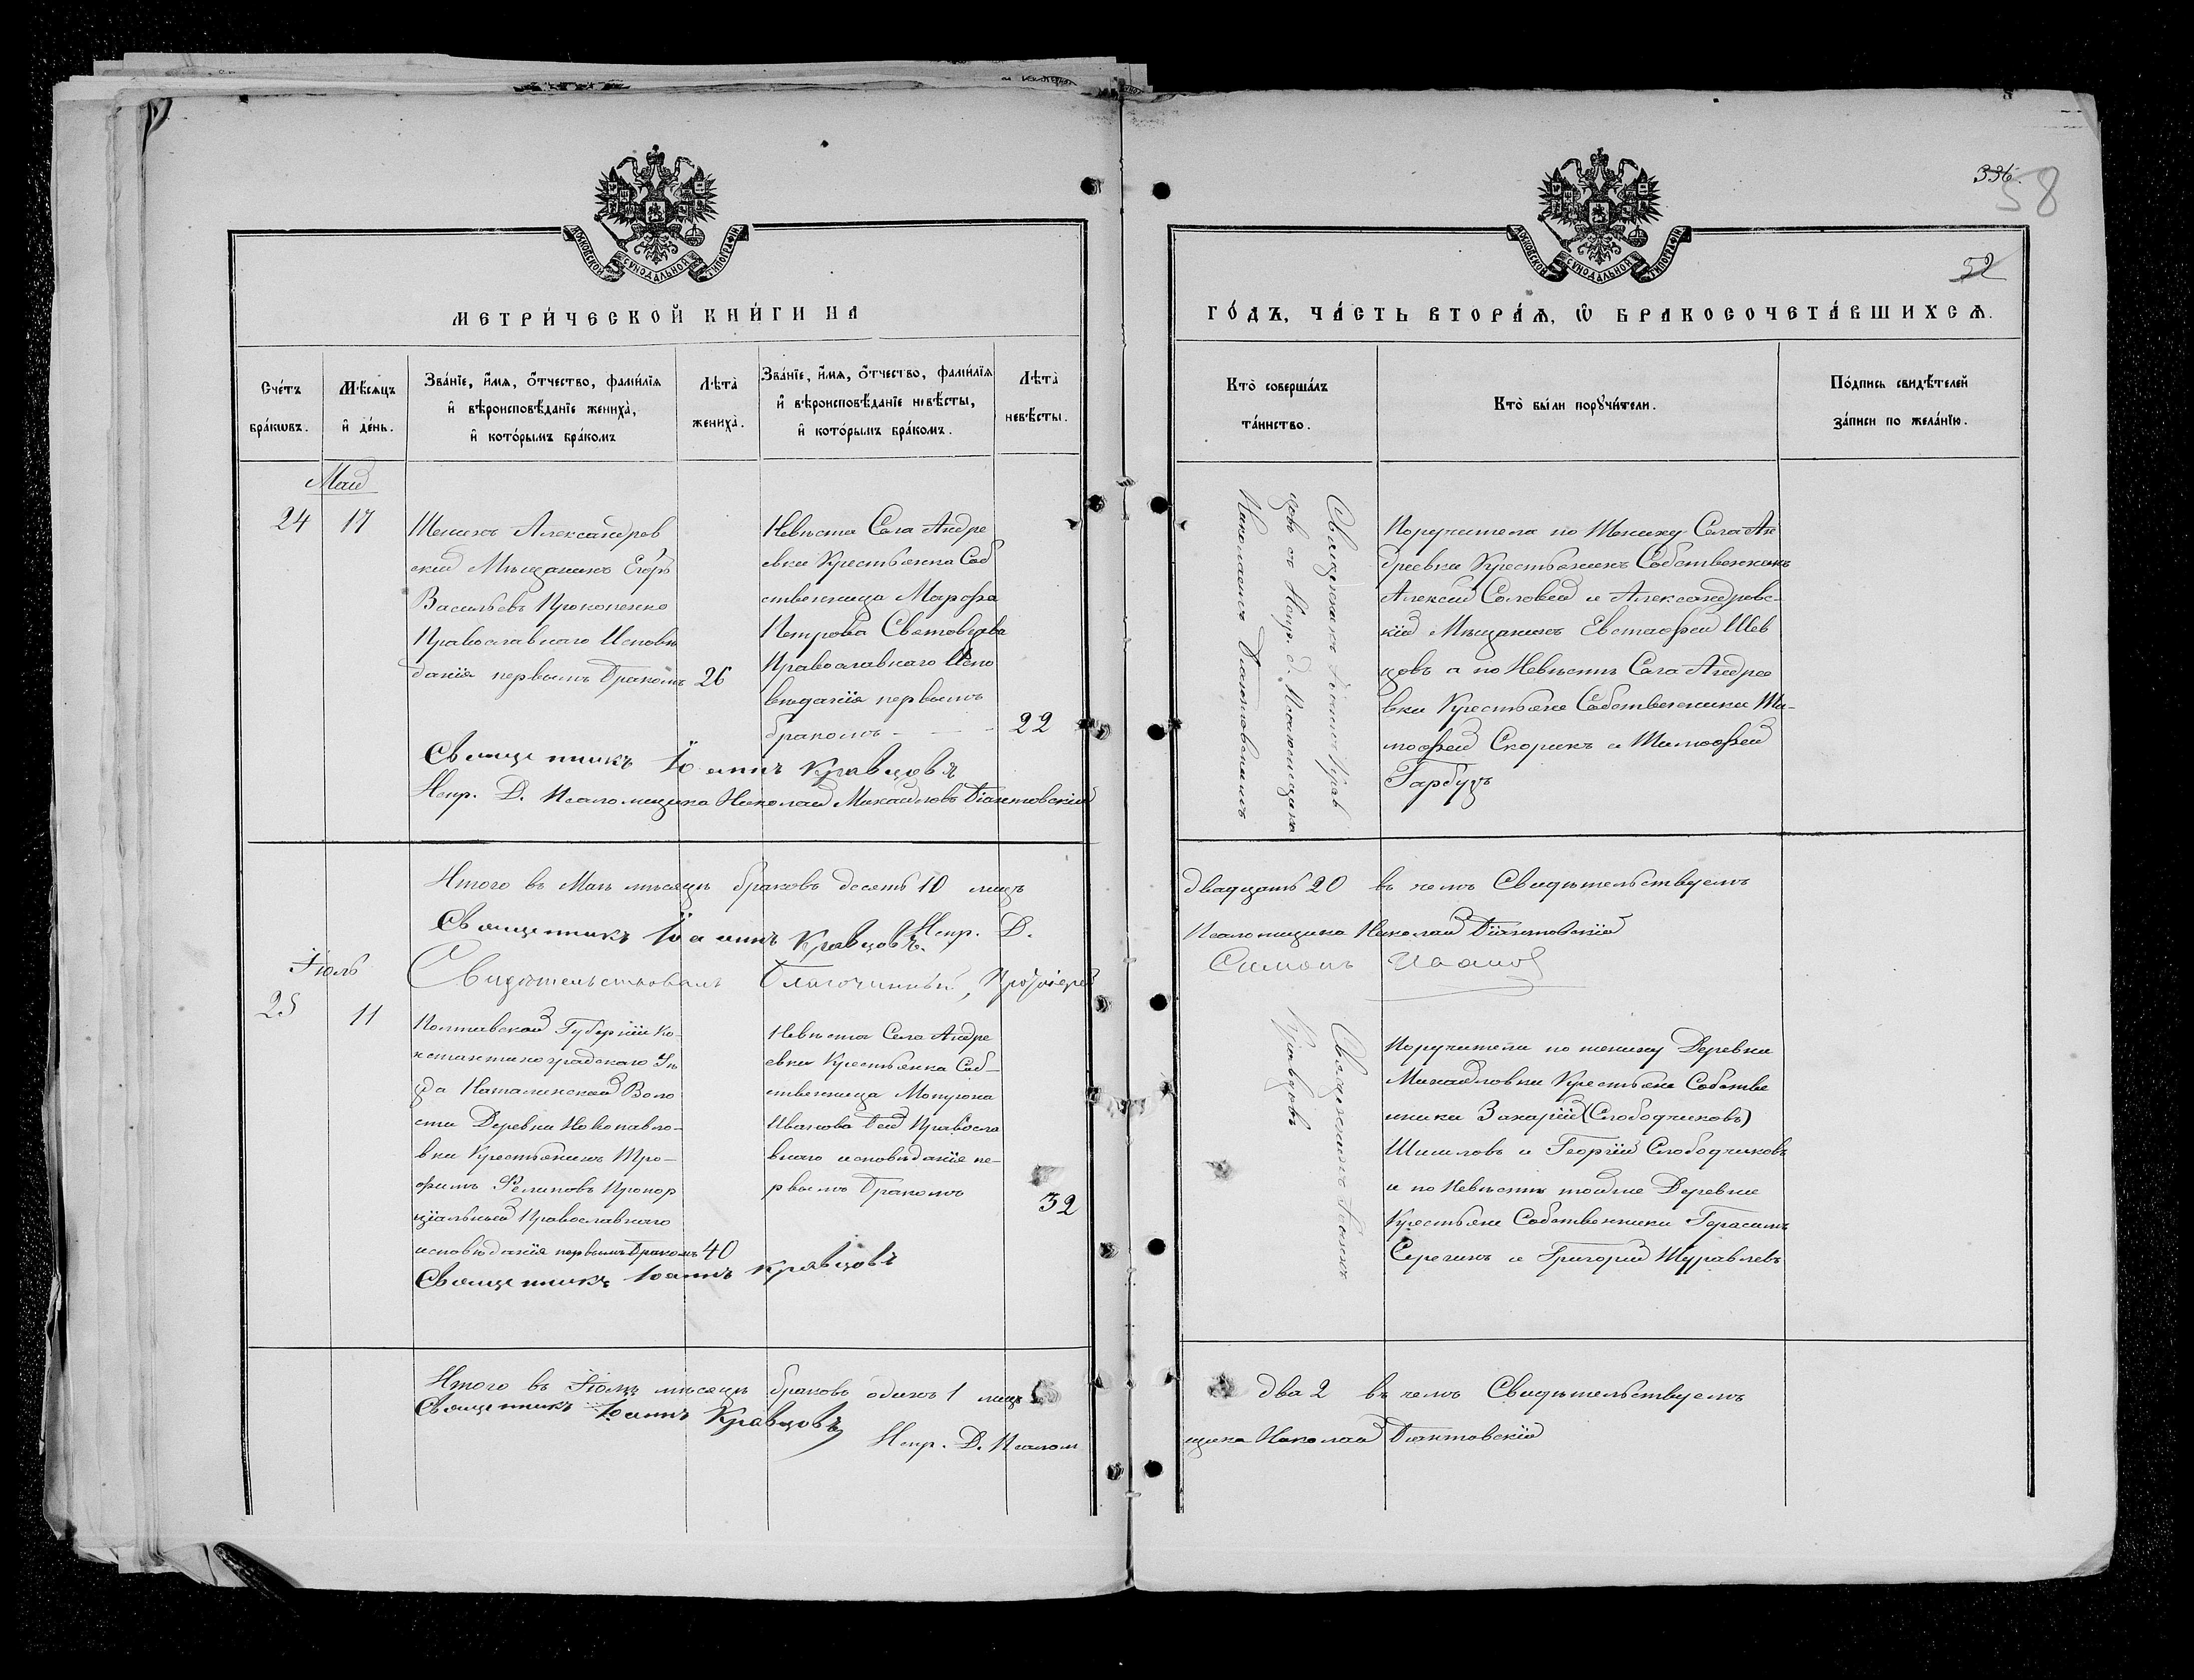 336.
58
52
МОСКОВСКОЙ СѴНОДАЛЬНОЙ ТИПОГРАФІИ
МЕТРИ́ЧЕСКОЙ КНИ́ГИ НА
Сче́тъ бра́кѡвъ.
Мѣ́сяцъ и҆ де́нь.
Зва́нїе, и҆́мѧ, ѻ҆́тчество, фами́лїѧ
и҆ вѣроисповѣ́данїе женихà,
и҆ кото́рымъ бра́комъ
Лѣ́та женихà.
Зва́нїе, и҆́мѧ, ѻ҆́тчество, фами́лїѧ
и҆ вѣроисповѣ́данїе невѣ́сты,
и҆ кото́рымъ бра́комъ.
Лѣ́та невѣ́сты.
Май
24
17
Женихъ Александров
скій Мѣщанинъ Егоръ
Васильевъ Прокопенко
Православнаго Исповѣ
данія первымъ бракомъ
26
Невѣста Села Андре
евки Крестьянка Соб
ственница Марфа
Петрова
Православнаго Испо
вѣданія первымъ
бракомъ - - -
22
Священникъ Іоаннъ Кравцовъ
Испр. Д. Псаломщика Николай Михайловъ Діантовскій
Итого въ Маѣ мѣсяцѣ браковъ десять 10 лицъ
Священникъ Іоаннъ Кравцовъ. Испр. Д.
Свидѣтельствовалъ Благочинный, Протоіерей
Іюль
25
11
Полтавской Губерніи Ко-
нстантиноградскаго Уѣ
зда Наталинской Воло
сти Деревни Новопавло-
вки Крестьянинъ Тро-
фимъ Филиповъ
Православнаго
исповѣданія первымъ бракомъ
40
Невѣста Села Андре
евки Крестьянка Соб-
ственница Матрона
Иванова Гей Правосла
внаго исповѣданія пе-
рвымъ бракомъ
32
Священникъ Іоаннъ Кравцовъ
Итого въ Іюлѣ мѣсяцѣ браковъ одинъ 1 лицъ
Священникъ Іоаннъ Кравцовъ
Испр. Д. Псалом
МОСКОВСКОЙ СѴНОДАЛЬНОЙ ТИПОГРАФІИ
ГО́ДЪ, ЧА́СТЬ ВТОРА́Ѧ, Ѽ БРАКОСОЧЕТА́ВШИХСѦ.
Кто̀ соверша́лъ та́инство.
Кто̀ бы́ли порꙋчи́тели.
По́дпись свидѣ́телей за́писи по жела́нїю.
Священникъ Іоаннъ Крав
цовъ съ Испр. д. Псаломщика
Николаемъ Діантовскимъ
Поручители по Жениху Села Ан
дреевки Крестьянинъ Собственникъ
Алексій Соловей и Александровс-
кій Мѣщанинъ Евстафій Шев
цовъ а по Невѣстѣ Села Андрее
вки Крестьяне Собственники Ти-
мофей Скорикъ и Тимофей
Гарбузъ
двадцать 20 въ чемъ Свидѣтельствуемъ
Псаломщика Николай Діантовскій
Симонъ
Священникъ Іоаннъ
Кравцовъ
Поручители по жениху Деревни
Михайловки Крестьяне Собстве
нники Захарій (Слободчиковъ)
Шишловъ и Георгій Слободчиковъ
и по Невѣстѣ тойже Деревни
Крестьяне Собственники Герасимъ
Серегинъ и Григорій Журавлевъ
два 2 въ чемъ Свидѣтельствуемъ
щика Николай Діантовскій